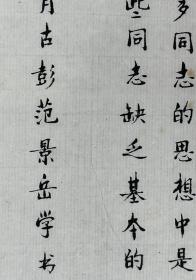 多同志的思想中是
些同志缺乏基本的
月古彭范景岳学书